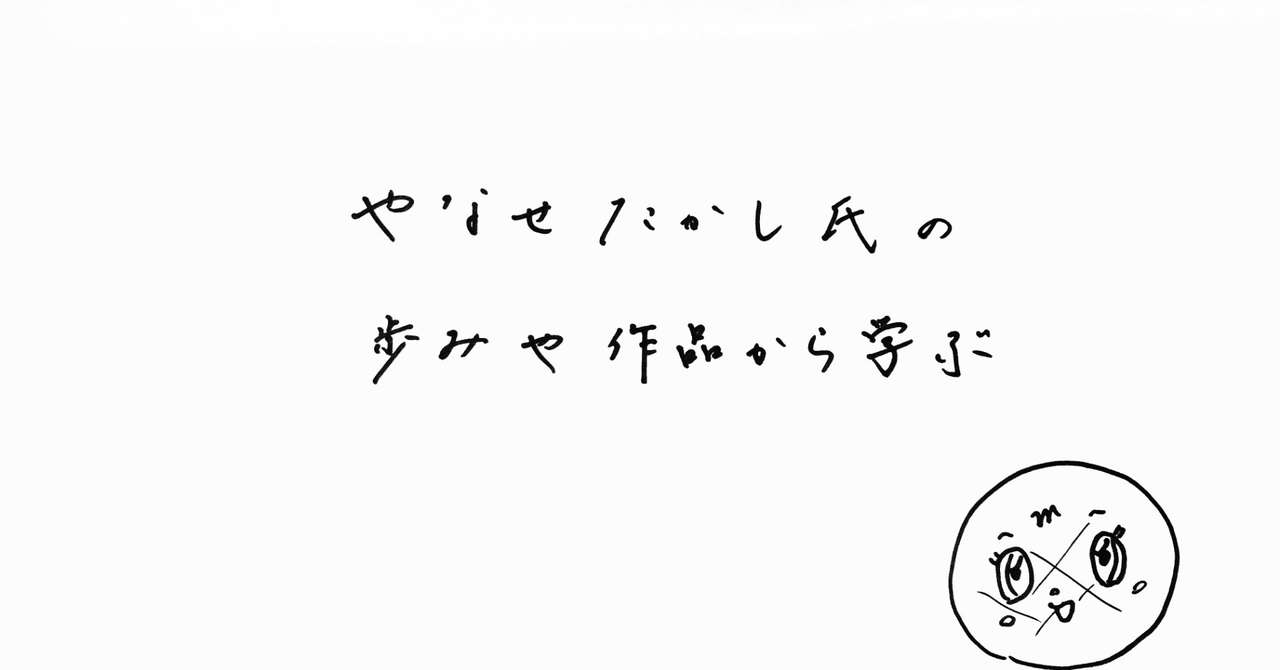 やなせたかし氏の
歩みや作品から学ぶ
m